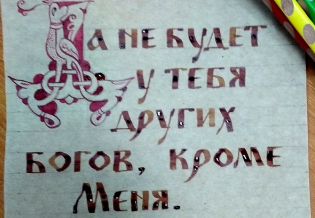 Да не будет
у тебя
других
богов, кроме
Меня.